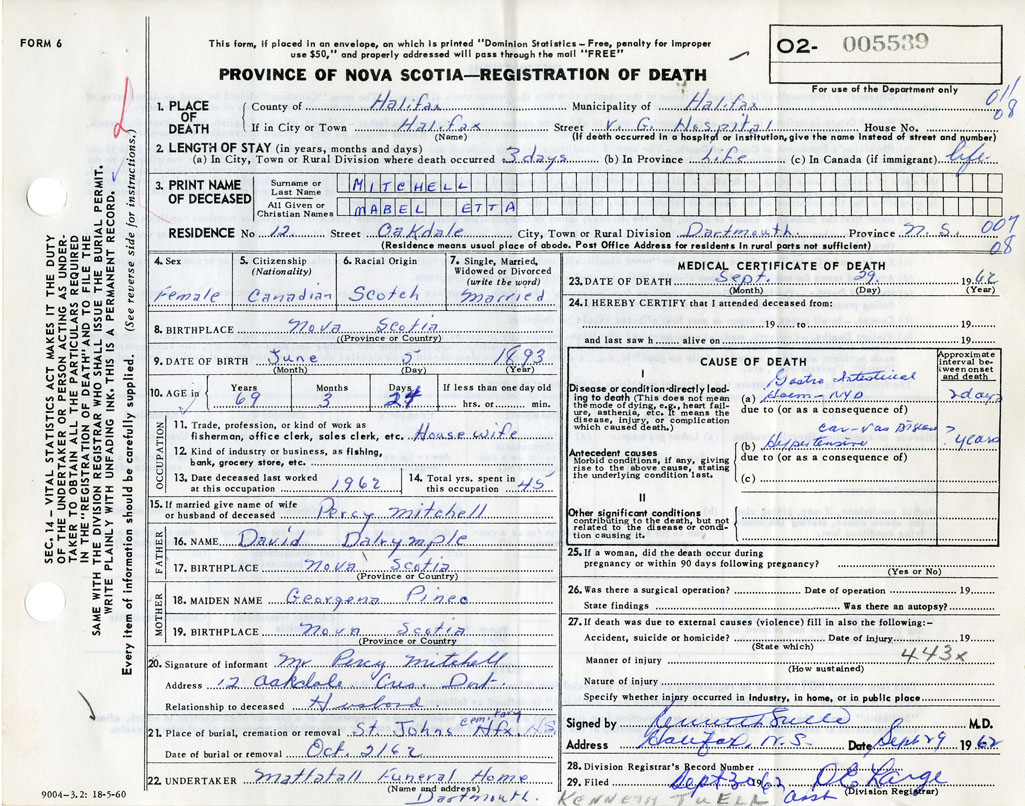 FORM 6
This form, if placed in an envelope, on which is printed "Dominion Statistics – Free, penalty for improper
use $50," and properly addressed will pass through the mail "FREE"
O2- 005539
For use of the Department only
PROVINCE OF NOVA SCOTIA—REGISTRATION OF DEATH
011
08
1. PLACE OF DEATH
County of Halifax Municipality of Halifax
If in City or Town Halifax Street V. G. Hospital House No.
(Name) (If death occurred in a hospital or institution, give the name instead of street and number)
2. LENGTH OF STAY (in years, months and days)
(a) In City, Town or Rural Division where death occurred 3 days (b) In Province Life (c) In Canada (if immigrant) life
3. PRINT NAME OF DECEASED
Surname or Last Name MITCHELL
All Given or Christian Names MABEL ETTA
RESIDENCE No 12 Street Oakdale City, Town or Rural Division Dartmouth Province N.S. 007
08
(Residence means usual place of abode. Post Office Address for residents in rural parts not sufficient)
4. Sex
Female
5. Citizenship
(Nationality)
Canadian
6. Racial Origin
Scotch
7. Single, Married,
Widowed or Divorced
(write the word)
Married
8. BIRTHPLACE Nova Scotia
(Province or Country)
9. DATE OF BIRTH June 5 1893
(Month) (Day) (Year)
10. AGE in Years Months Days If less than one day old
69 3 24 hrs. or min.
OCCUPATION
11. Trade, profession, or kind of work as
fisherman, office clerk, sales clerk, etc. House wife
12. Kind of industry or business, as fishing,
bank, grocery store, etc.
13. Date deceased last worked
at this occupation 1962
14. Total yrs. spent in
this occupation 45
15. If married give name of wife
or husband of deceased Percy Mitchell
FATHER
16. NAME David Dalrymple
17. BIRTHPLACE Nova Scotia
(Province or Country)
MOTHER
18. MAIDEN NAME Georgena Pineo
19. BIRTHPLACE Nova Scotia
(Province or Country
20. Signature of informant Mr Percy Mitchell
Address 12 Oakdale Cres. Dart.
Relationship to deceased Husbond
21. Place of burial, cremation or removal St. Johns Cemetary Hfx. NS
Date of burial or removal Oct. 2/62
22. UNDERTAKER Mattatall Funeral Home
(Name and address)
Dartmouth.
9004-3.2: 18-5-60
MEDICAL CERTIFICATE OF DEATH
23. DATE OF DEATH Sept. 29. 1962
(Month) (Day) (Year)
24. I HEREBY CERTIFY that I attended deceased from:
19 to 19
and last saw h alive on 19
CAUSE OF DEATH
Approximate
interval be-
tween onset
and death
I
Disease or condition-directly lead-
ing to death (This does not mean
the mode of dying, e.g., heart fail-
ure, asthenia, etc. It means the
disease, injury, or complication
which caused death.)
(a) Gastro Intestinal
Haem - NYD 2 days
due to (or as a consequence of)
Antecedent causes
Morbid conditions, if any, giving
rise to the above cause, stating
the underlying condition last.
Car-Vas Disease ?
(b) Hypertensive years
due to (or as a consequence of)
(c)
II
Other significant conditions
contributing to the death, but not
related to the disease or condi-
tion causing it.
25. If a woman, did the death occur during
pregnancy or within 90 days following pregnancy?
(Yes or No)
26. Was there a surgical operation? Date of operation 19
State findings Was there an autopsy?
27. If death was due to external causes (violence) fill in also the following:–
Accident, suicide or homicide? Date of injury 19
(State which)
443x
Manner of injury
(How sustained)
Nature of injury
Specify whether injury occurred in industry, in home, or in public place
Signed by Kenneth Tuell M.D.
Address Halifax, N.S. Date Sept 29 1962
28. Division Registrar's Record Number
29. Filed Sept 30 1962 D E Large
(Division Registrar)
KENNETH TUELL Asst
SEC. 14 – VITAL STATISTICS ACT MAKES IT THE DUTY
OF THE UNDERTAKER OR PERSON ACTING AS UNDER-
TAKER TO OBTAIN ALL THE PARTICULARS REQUIRED
IN THE "REGISTRATION OF DEATH" AND TO FILE THE
SAME WITH THE DIVISION REGISTRAR WHO SHALL ISSUE THE BURIAL PERMIT.
WRITE PLAINLY WITH UNFADING INK-THIS IS A PERMANENT RECORD.
Every item of information should be carefully supplied. (See reverse side for instructions.)